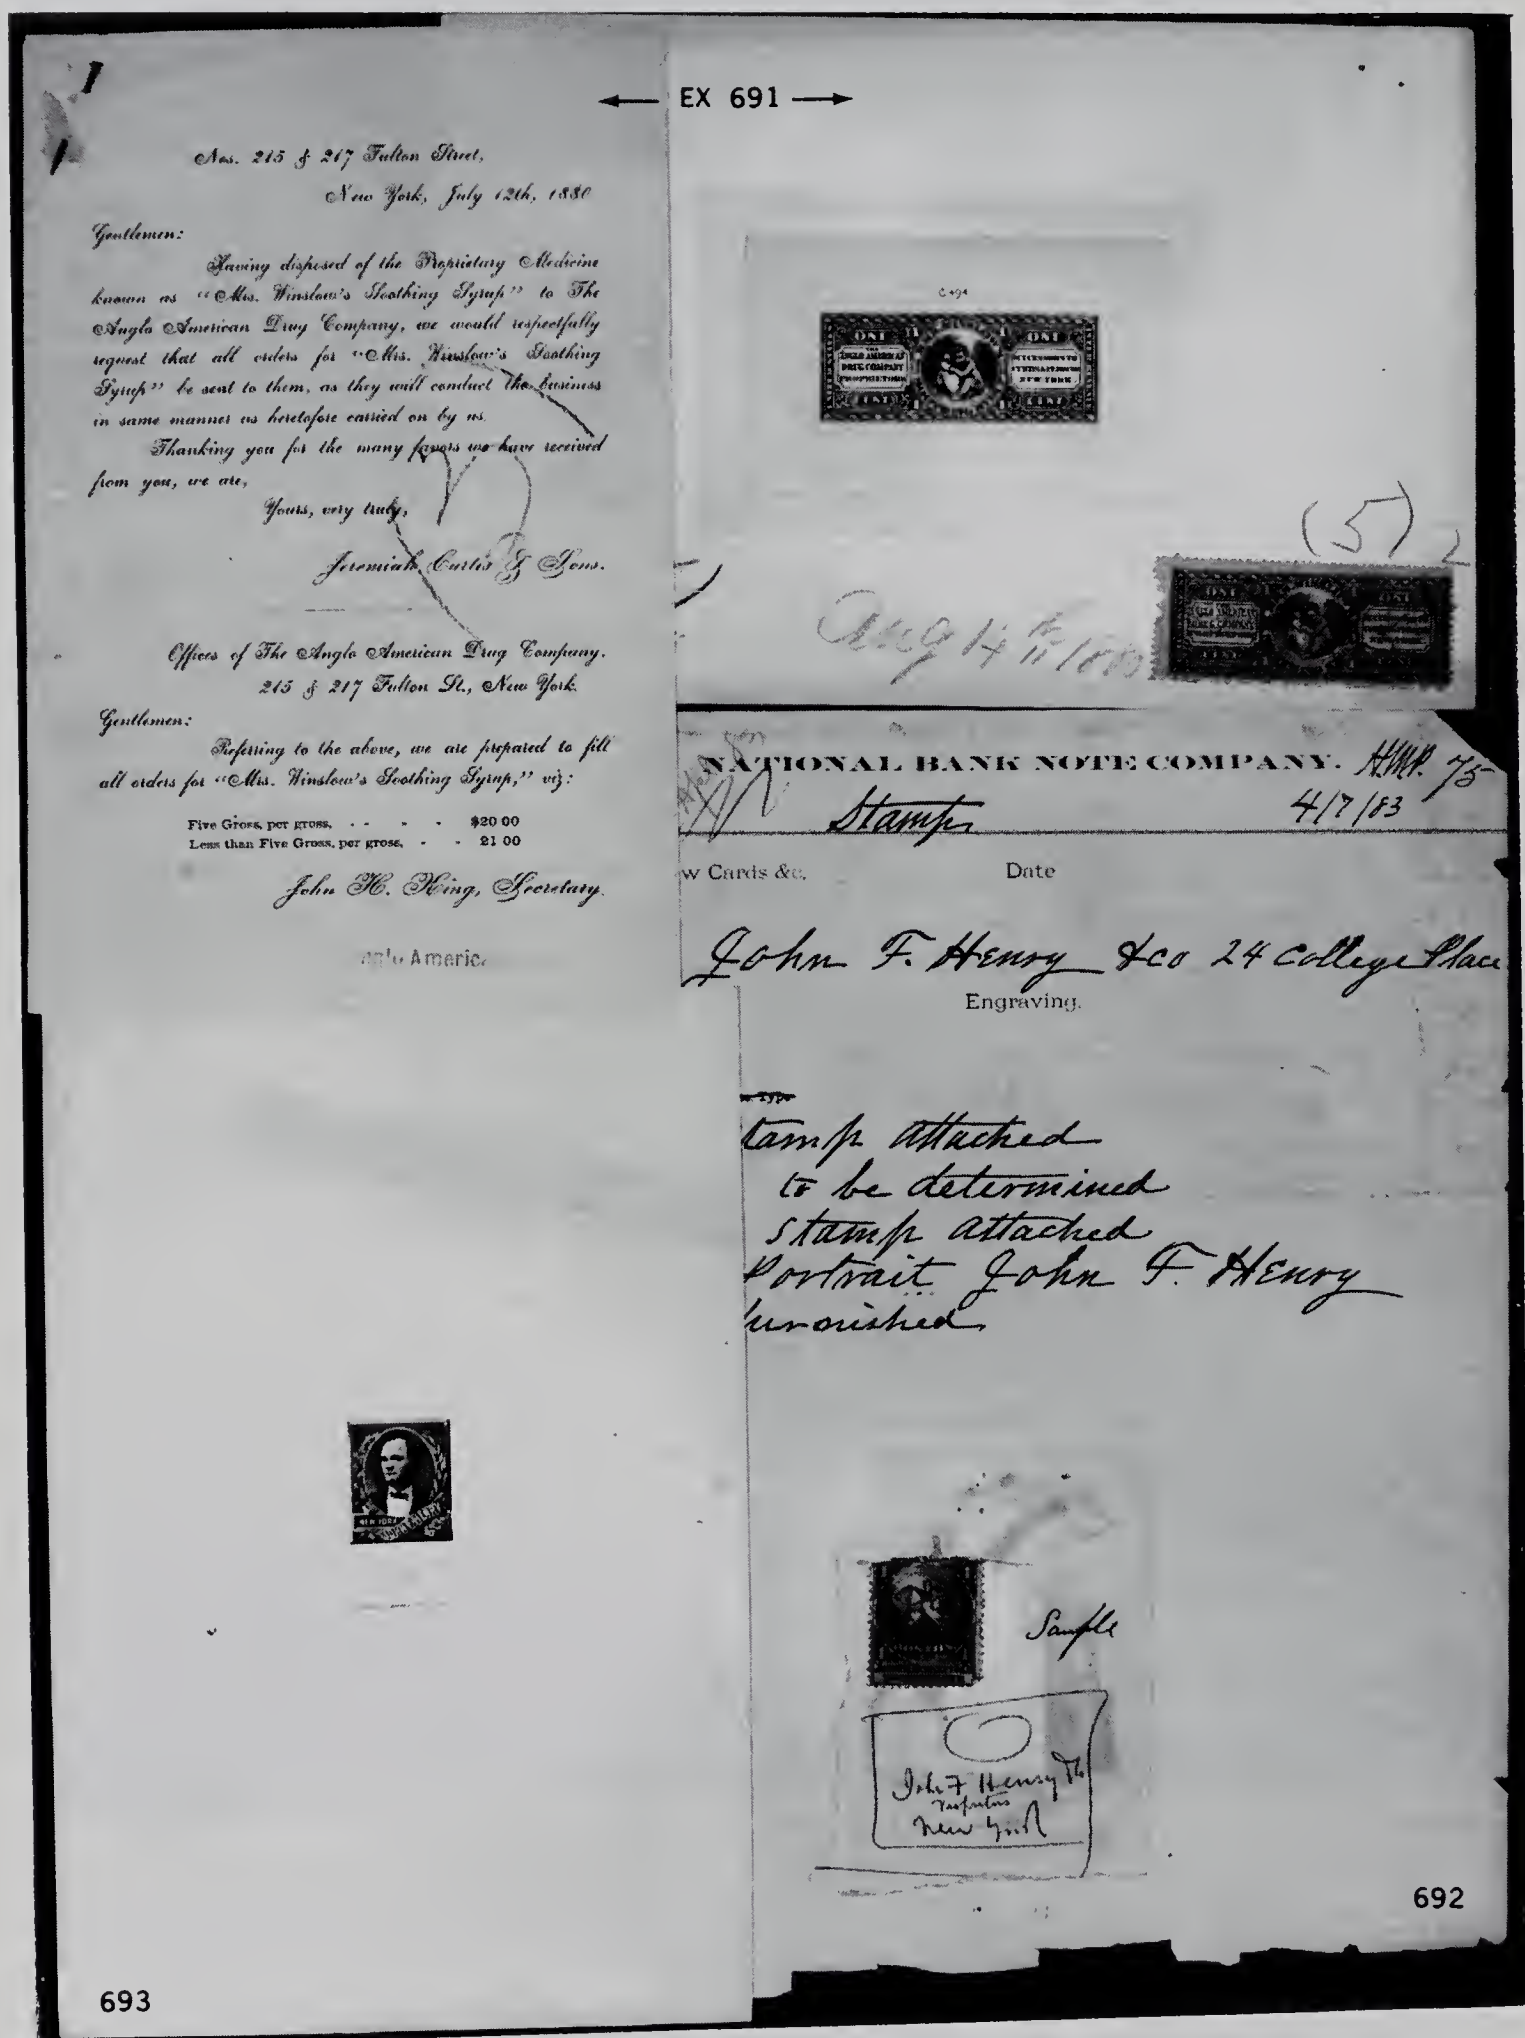 EX 691
Nos. 215 & 217 Fulton Street,
New York, July 12th, 1880
Gentlemen:
Having disposed of the Proprietary Medicine
known as "Mrs. Winslow's Soothing Syrup" to The
Anglo American Drug Company, we would respectfully
request that all orders for "Mrs. Winslow's Soothing
Syrup" be sent to them, as they will conduct the business
in same manner as heretofore carried on by us.
Thanking you for the many favors we have received
from you, we are,
Yours, very truly,
Jeremiah Curtis & Sons.
Offices of The Anglo American Drug Company.
215 & 217 Fulton St., New York.
Gentlemen:
Referring to the above, we are prepared to fill
all orders for "Mrs. Winslow's Soothing Syrup," viz:
Five Gross, per gross, - - - - $20 00
Less than Five Gross, per gross, - - 21 00
John H. King, Secretary.
nglo Americ
C 494
ONE ONE
THE
ANGLO AMERICAN
DRUG COMPANY
PROPRIETORS
SUCCESSORS TO
NEW YORK
CENT CENT
(5) 2
Aug 14th
ONE ONE
CENT
NATIONAL BANK NOTE COMPANY. H.M.P. 75
Stamps 4/7/83
w Cards &c. Date
John F. Henry & co 24 College Place
Engraving.
Type
tamp attached
to be determined
stamp attached
Portrait John F. Henry
furnished
NEW YORK
Sample
John F Henry
Proprietors
New York
692
693